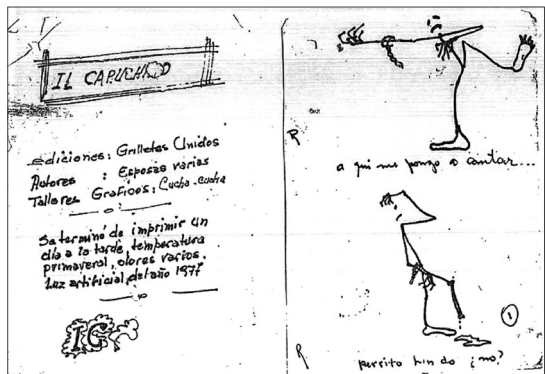 IL CAPUCHINO
Ediciones: Grilletes Unidos
Autores : Esposas varias
Talleres Graficos: Cucha-cucha
Se terminó de imprimir un
día a la tarde, temperatura
primaveral, olores varios.
Luz artificial, del año 1977
IC
R
a qui me pongo a cantar...
1
R
perrito lindo ¿no?